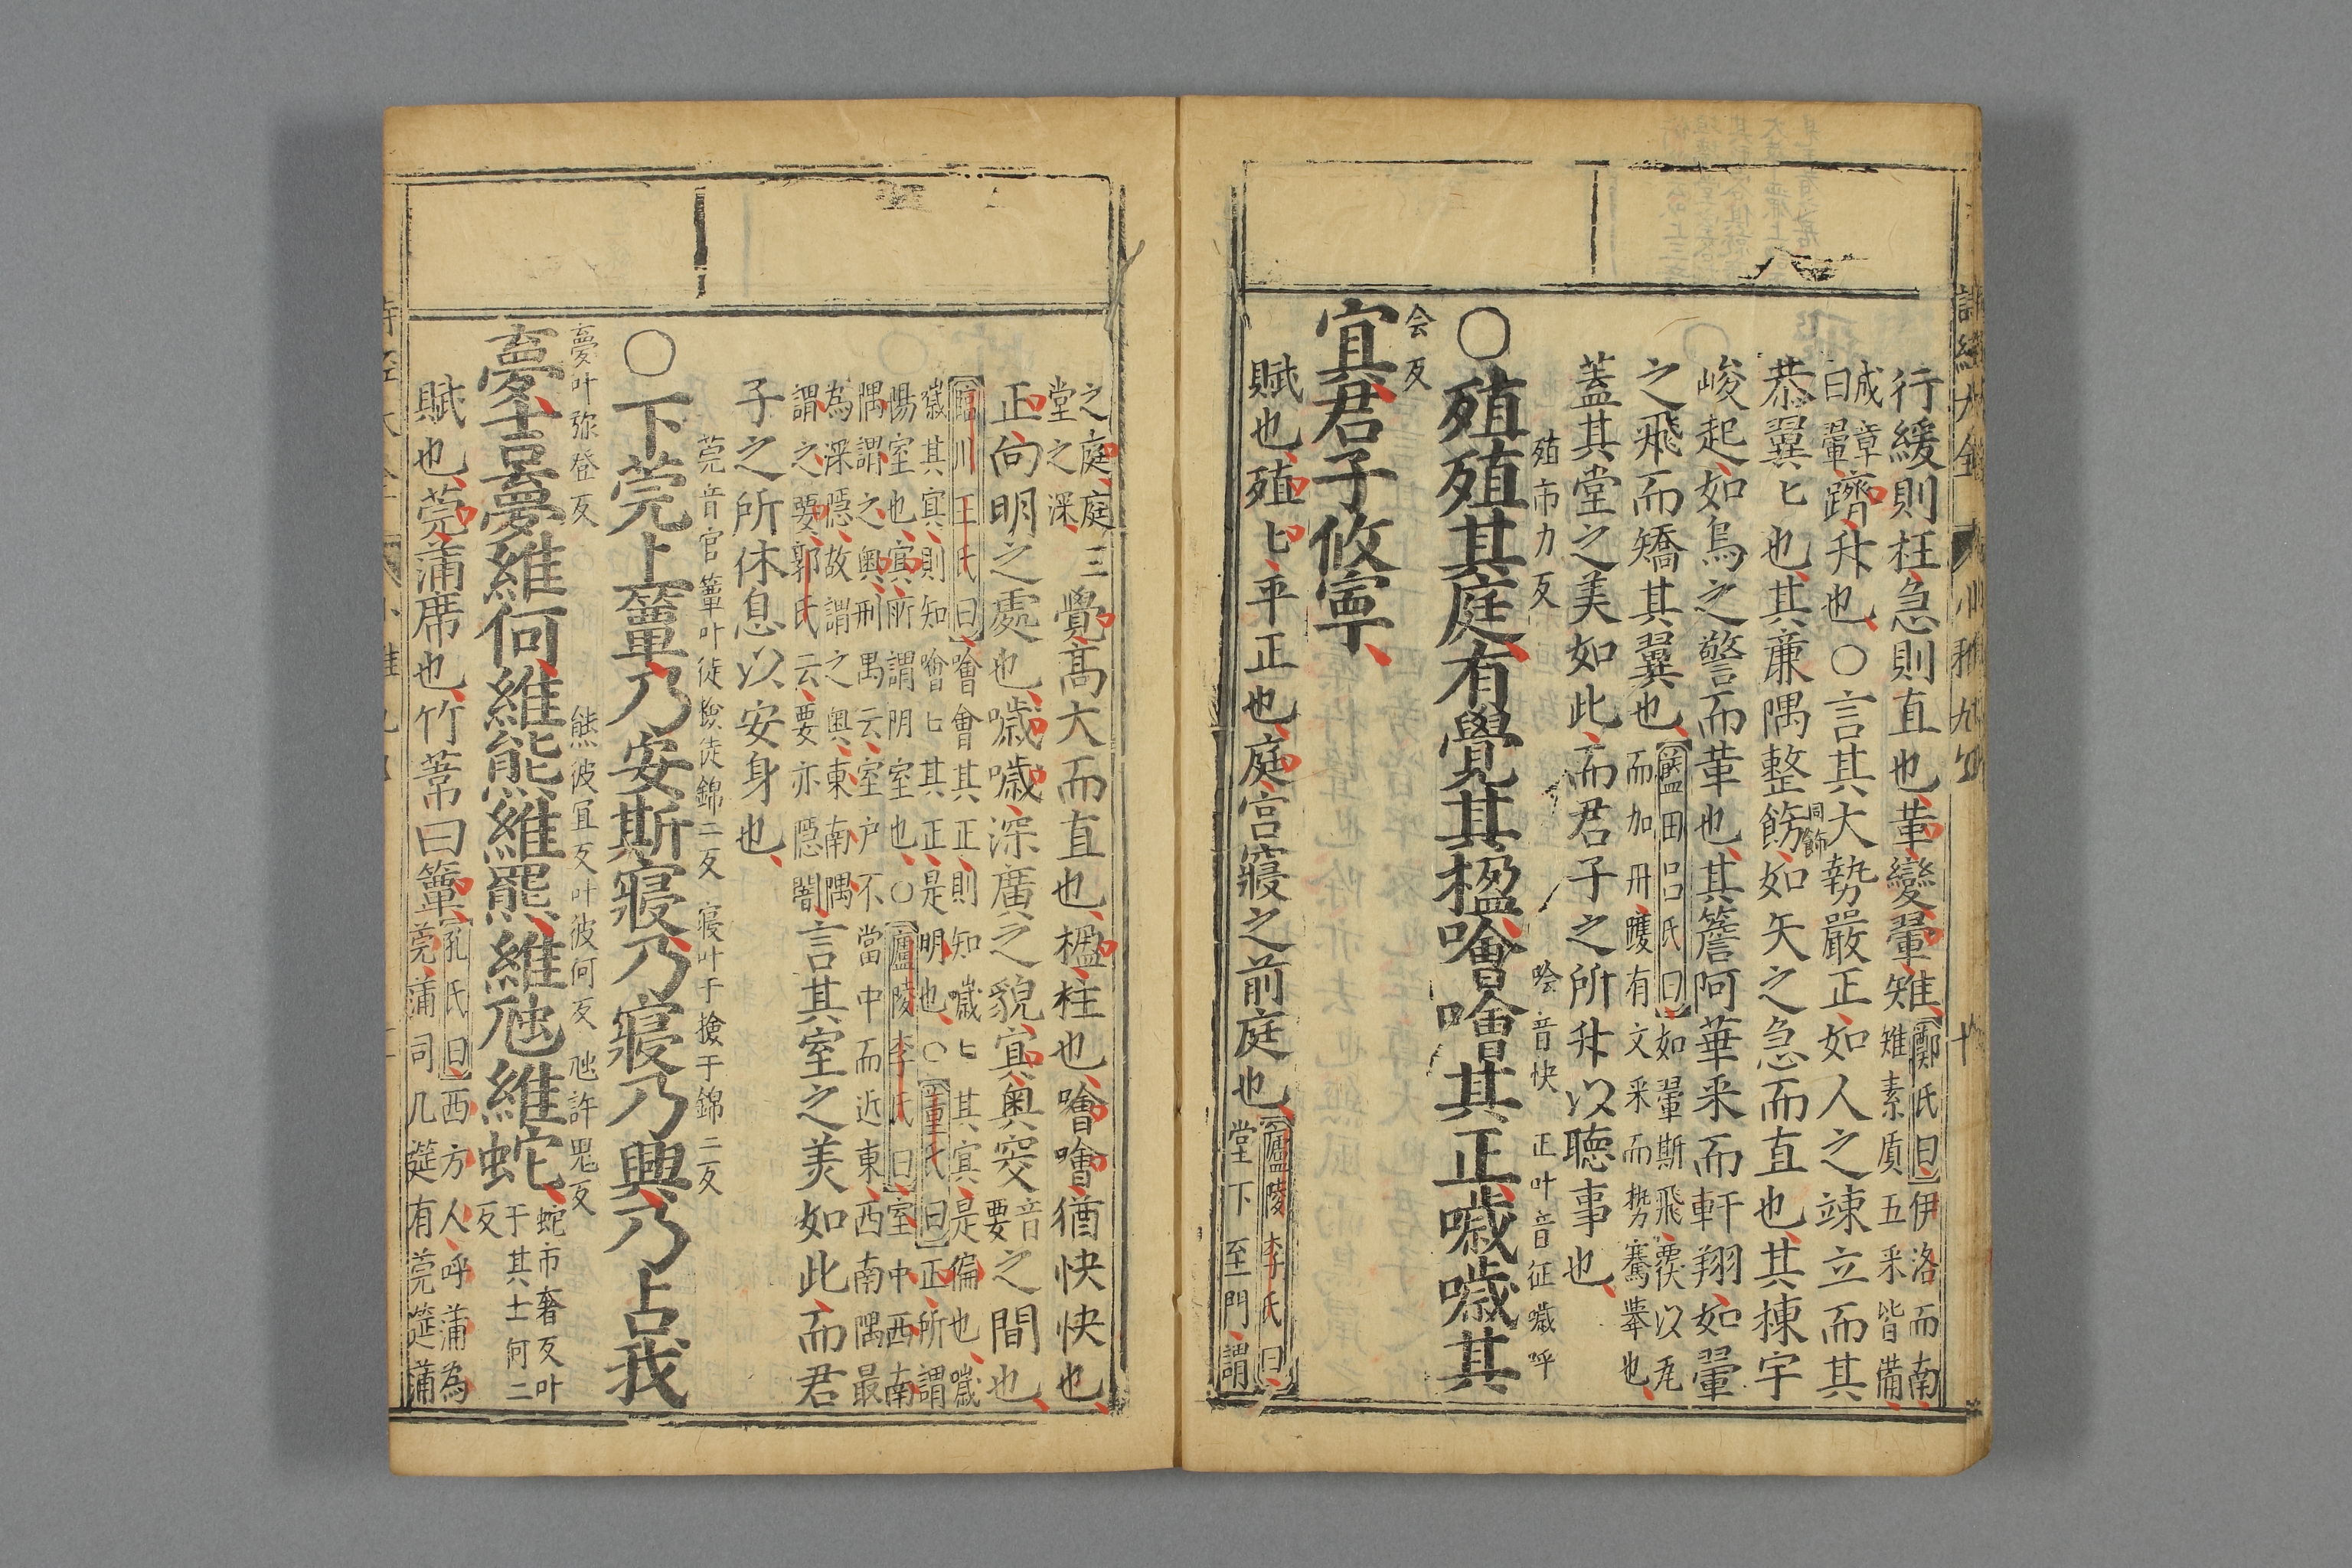 行緩則枉急則直也革變翬雉鄭氏曰伊洛而南
雉素質五采皆備
成章
曰翬躋升也○言其大勢嚴正如人之竦立而其
恭翼匕也其廉隅整飭如矢之急而直也其棟宇
同飾
峻起如鳥之警而革也其簷阿華采而軒翔如翬
之飛而矯其翼也藍田呂氏曰如翬斯飛覆以瓦
而加丹雘有文采而勢騫舉也
蓋其堂之美如此而君子之所升以聽事也
殖市力反 噲音快 正叶音征 噦呼
○殖殖其庭有覺其楹噲噲其正噦噦其
会反
宜君子攸寧
賦也殖匕平正也庭宮寢之前庭也廬陵李氏曰
堂下至門謂
之庭庭三
堂之深
覺高大而直也楹柱也噲噲猶快快也
正向明之處也噦噦深廣之貌宜奧窔音要之間也
臨川王氏曰噲會其正則知噦匕其宜是偏也噦
噦其宜則知噲匕其正是明也○董氏曰正所謂
陽室也宜所謂阴室也○廬陵李氏曰室中西南
隅謂之奧刑昺云室户不當中而近東西南隅最
為深隱故謂之奧東南隅
謂之窔郭氏云窔亦隱闇
言其室之美如此而君
子之所休息以安身也
莞音官 簟叶徒撿徒錦二反 寢叶于撿于錦二反
○下莞上簟乃安斯寢乃寢乃興乃占我
夢叶弥登反 熊彼宜反叶彼何反 虺許鬼反
夢吉夢維何維熊維羆維虺維蛇蛇市奢反叶
于其土何二
反
賦也莞蒲席也竹葦曰簟孔氏曰西方人呼蒲為
莞蒲司几筵有莞筵蒲